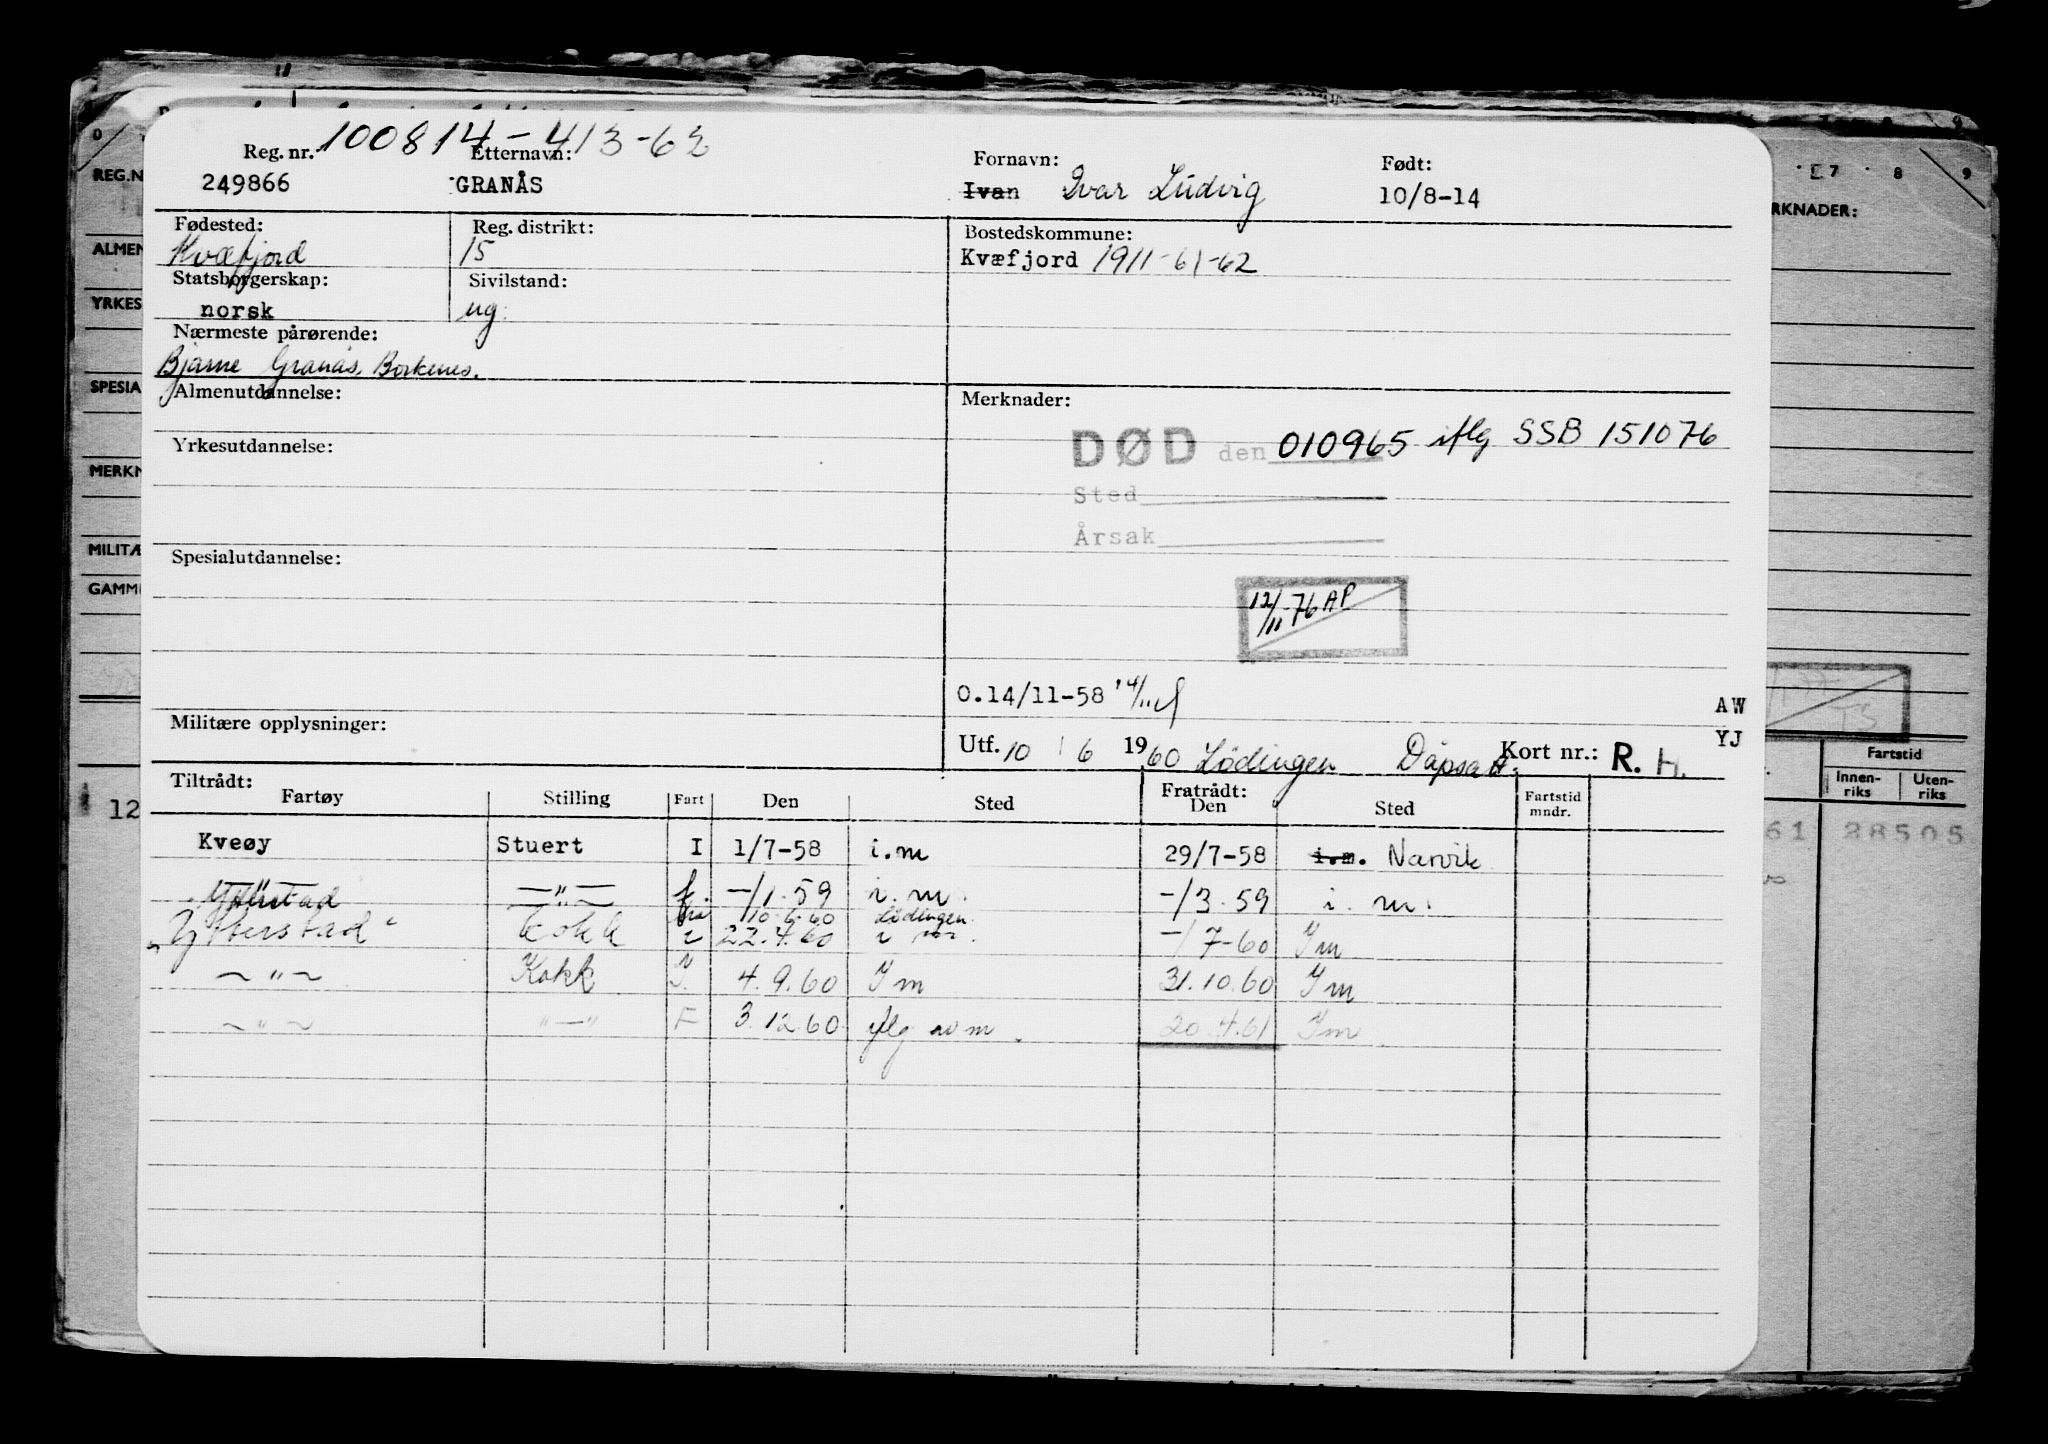 Reg. nr. 100814-413-62 Etternavn: Fornavn: Født:
249866 GRANÅS Ivan Ivar Ludvig 10/8-14
Fødested: Reg. distrikt: Bostedskommune:
Kvæfjord 15 Kvæfjord 1911-61-62
Statsborgerskap: Sivilstand:
norsk ug.
Nærmeste pårørende:
Bjarne Granås, Borkenes.
Almenutdannelse: Merknader:
Yrkesutdannelse: DØD den 010965 iflg SSB 151076
Sted
Årsak
Spesialutdannelse:
12/11-76 AP
O.14/11-58 14/11 AW
Militære opplysninger: Utf. 10 / 6 1960 Lödingen Dåpsatt. Kort nr.: R. H. YJ
Tiltrådt: Fratrådt:
Fartøy Stilling Fart Den Sted Den Sted Fartstid mndr.
Kveøy Stuert I 1/7-58 i.m 29/7-58 i.m. Narvik
Ytterstad —"— f. -/1.59 i.m. -/3.59 i.m.
10.6.60 Lödingen
"Ytterstad" Kokk i 22.4.60 i m. -/7-60 I m
—"— Kokk 4.9.60 I m 31.10.60 I m
—"— "—" F 3.12.60 iflg av m 20.4.61 I m
REG.N
ALMEN
YRKES
SPESIA
MERKN
MILITÆ
GAMM
12
7 8 9
RKNADER:
TS
Fartstid
Innenriks Utenriks
61 28505